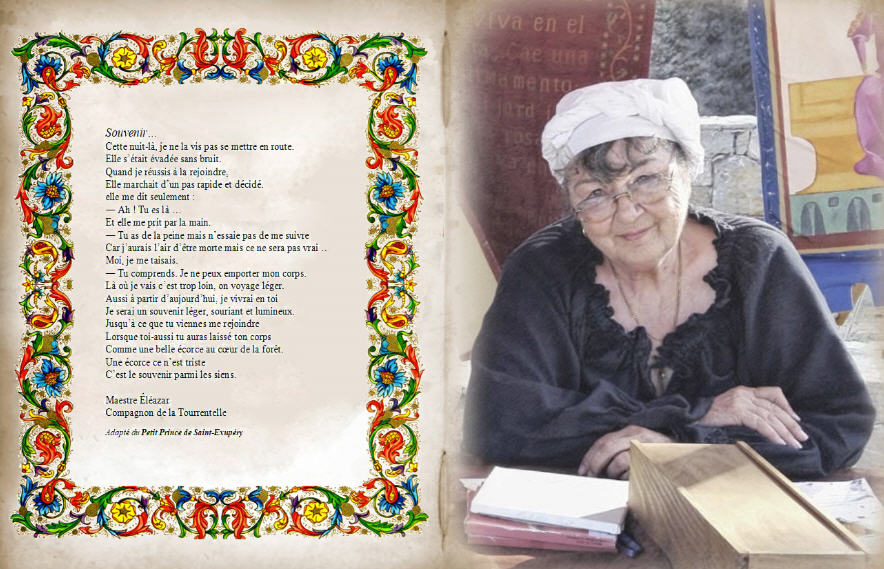 Souvenir…
Cette nuit-là, je ne la vis pas se mettre en route.
Elle s'était évadée sans bruit.
Quand je réussis à la rejoindre,
Elle marchait d'un pas rapide et décidé.
elle me dit seulement :
— Ah ! Tu es là …
Et elle me prit par la main.
— Tu as de la peine mais n'essaie pas de me suivre
Car j'aurais l'air d'être morte mais ce ne sera pas vrai ..
Moi, je me taisais.
— Tu comprends. Je ne peux emporter mon corps.
Là où je vais c'est trop loin, on voyage léger.
Aussi à partir d'aujourd'hui, je vivrai en toi
Je serai un souvenir léger, souriant et lumineux.
Jusqu'à ce que tu viennes me rejoindre
Lorsque toi-aussi tu auras laissé ton corps
Comme une belle écorce au cœur de la forêt.
Une écorce ce n'est triste
C'est le souvenir parmi les siens.
Maestre Éléazar
Compagnon de la Tourrentelle
Adapté du Petit Prince de Saint-Exupéry
viva en el
Cae una
amento
jard